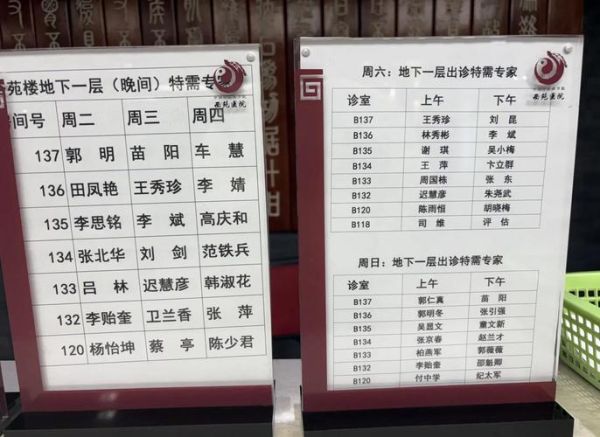 苑楼地下一层（晚间）特需专
间号 周二 周三 周四
137 郭明 苗阳 车慧
136 田凤艳 王秀珍 李婧
135 李思铭 李斌 高庆和
134 张北华 刘剑 范铁兵
133 吕林 迟慧彦 韩淑花
132 李贻奎 卫兰香 张萍
120 杨怡坤 蔡亭 陈少君
西苑医院
周六：地下一层出诊特需专家
诊室 上午 下午
B137 王秀珍 刘昆
B136 林秀彬 李斌
B135 谢琪 吴小梅
B134 王萍 卞立群
B133 周国栋 张东
B132 迟慧彦 朱尧武
B120 陈雨恒 胡晓梅
B118 司维 评估
周日：地下一层出诊特需专家
诊室 上午 下午
B137 郭仁真 苗阳
B136 郭明冬 张引强
B135 吴显文 董文新
B134 张京春 赵兰才
B133 柏燕军 郭薇薇
B132 李贻奎 邵魁卿
B120 付中学 纪太军
西苑医院